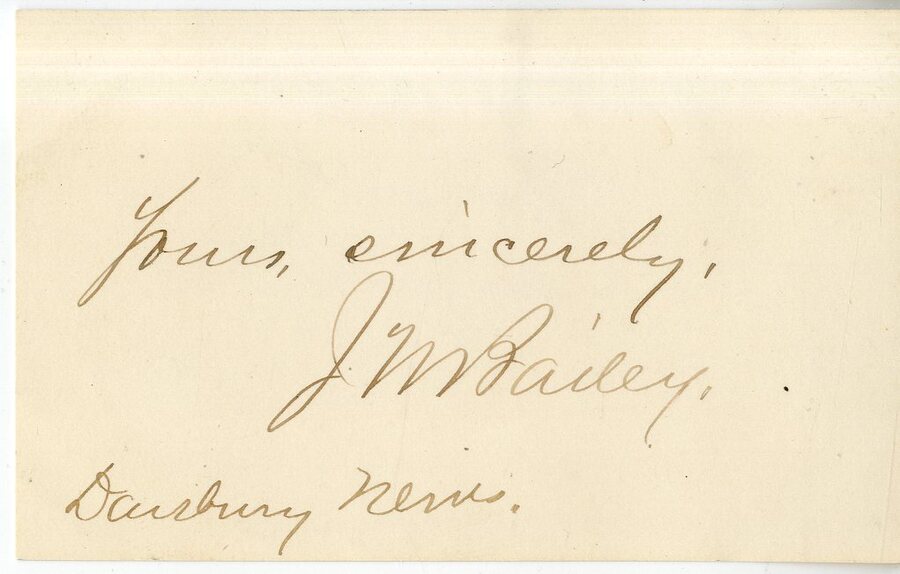 Yours, sincerely,
J M Bailey.
Danbury News.